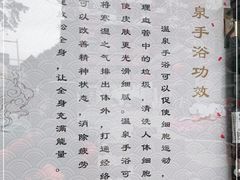 泉手浴功效
温泉手浴可以促使细胞运动，
理血管中的垃圾，清洗人体细胞
使皮肤更光滑细腻。温泉手浴可
将寒湿之气排出体外，打通经络
可以改善精神状态，消除疲劳
松全身，让全身充满能量。